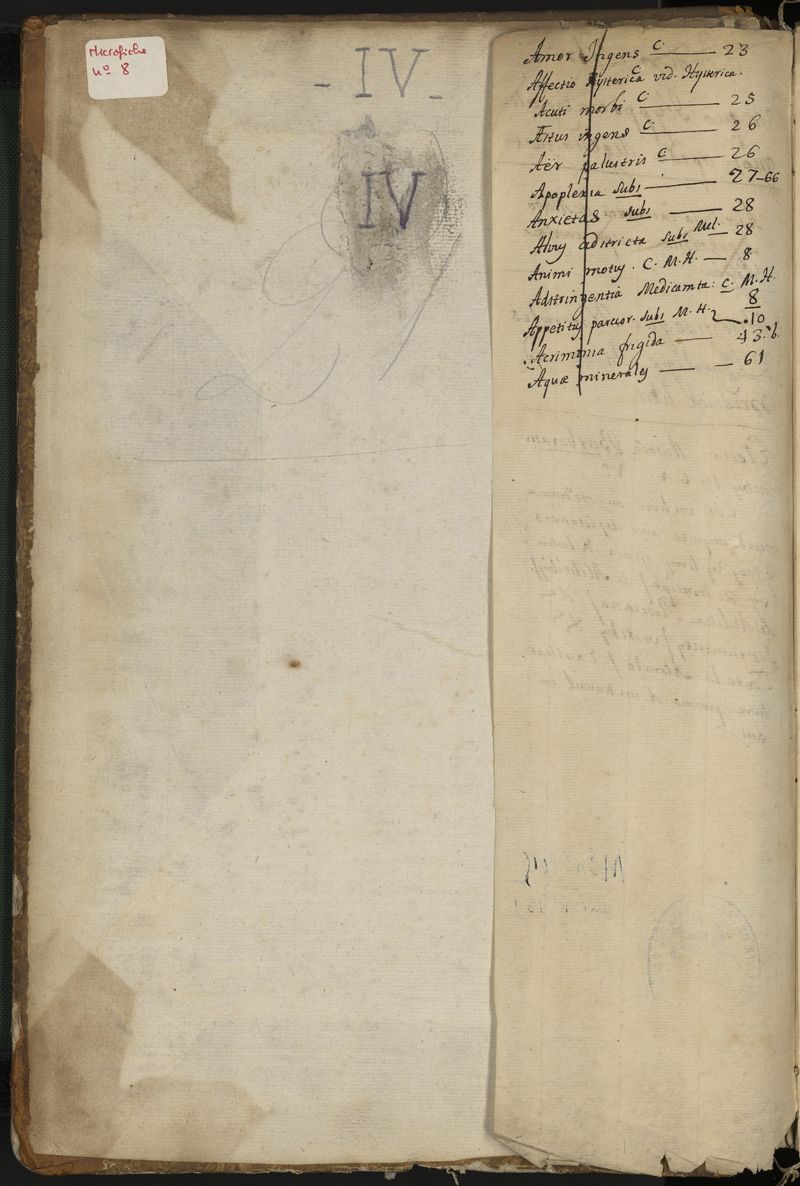 Microfiche
Nº 8
- IV -
IV
Amor Ingens C. — 23
Affectio Hysterica C. vid. Hysterica.
Acuti morbi C. — 25
Æstus ingens C. — 26
Aër palustris C. — 26
Apoplexia subs — 27-66
Anxietas subs — 28
Alvus adstricta subs Mel. — 28
Animi motus. C. M.H. — 8
Adstringentia Medicamta: C. M.H. 8
Appetitus parcior. subs M.H. .10
Acrimonia frigida — 43.b.
Aquæ minerales — — 61